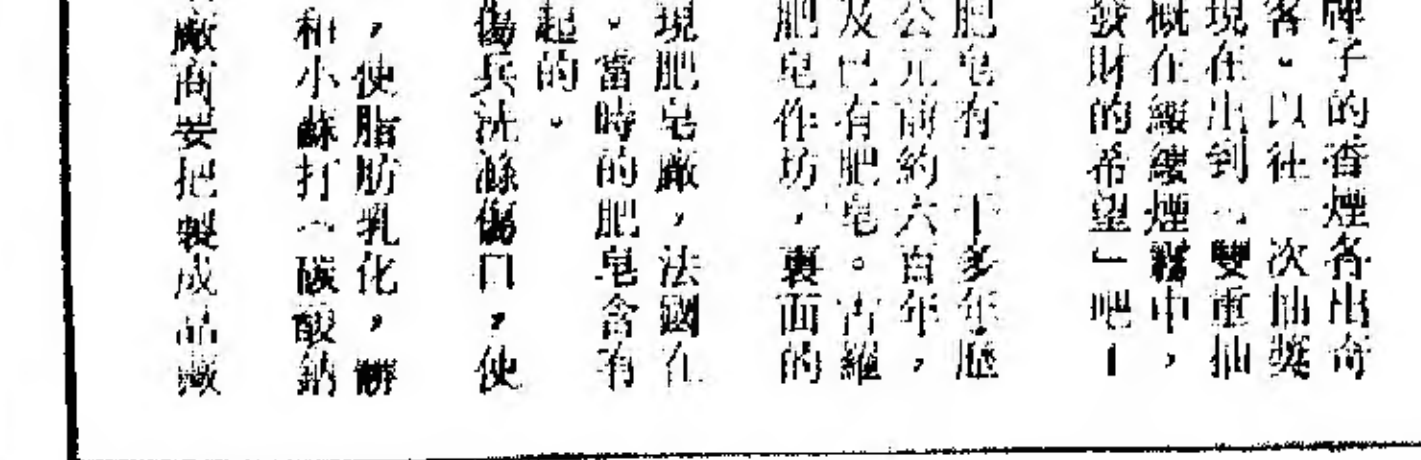 牌子的香煙各出奇
客。以往一次抽獎
現在出到「雙重抽
概在縷縷煙霧中，
發財的希望」吧！
肥皂有二千多年歷
公元前約六百年，
及已有肥皂。古羅
肥皂作坊，裏面的
現肥皂廠，法國在
。當時的肥皂含有
起的。
傷兵洗滌傷口，使
，使脂肪乳化，髒
和小蘇打（碳酸鈉
廠商要把製成品藏